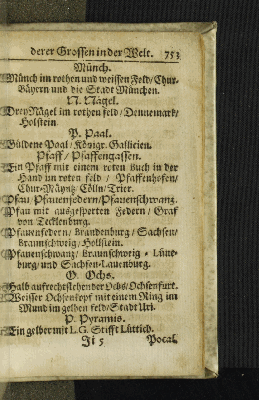 derer Grossen in der Welt. 753
Münch.
Münch im rothen und weissen Feld/ Chur-
Bäyern und die Stadt München.
N. Nägel.
Drey Nägel im rothen feld/ Dennemark/
Holstein.
P. Paal.
Güldene Paal/ Königr. Gallicien.
Pfaff/ Pfaffengassen.
Ein Pfaff mit einem roten Buch in der
Hand im roten feld/ Pfaffenhofen/
Chur-Mäyntz/ Cölln/ Trier.
Pfau/ Pfauenfedern/ Pfauenschwantz.
Pfau mit ausgesporten Federn/ Graf
von Tecklenburg.
Pfauenfedern/ Brandenburg/ Sachsen/
Braunschweig/ Hollstein.
Pfauenschwanz/ Braunschweig-Lüne-
burg/ und Sachsen-Lauenburg.
O. Ochs.
Halb aufrechtstehender Ochs/ Ochsenfurt.
Weisser Ochsenkopf mit einem Ring im
Mund im gelben feld/ Stadt Uri.
P. Pyramis.
Ein gelber mit L.G. Stifft Lüttich.
Ji 5 Pocal